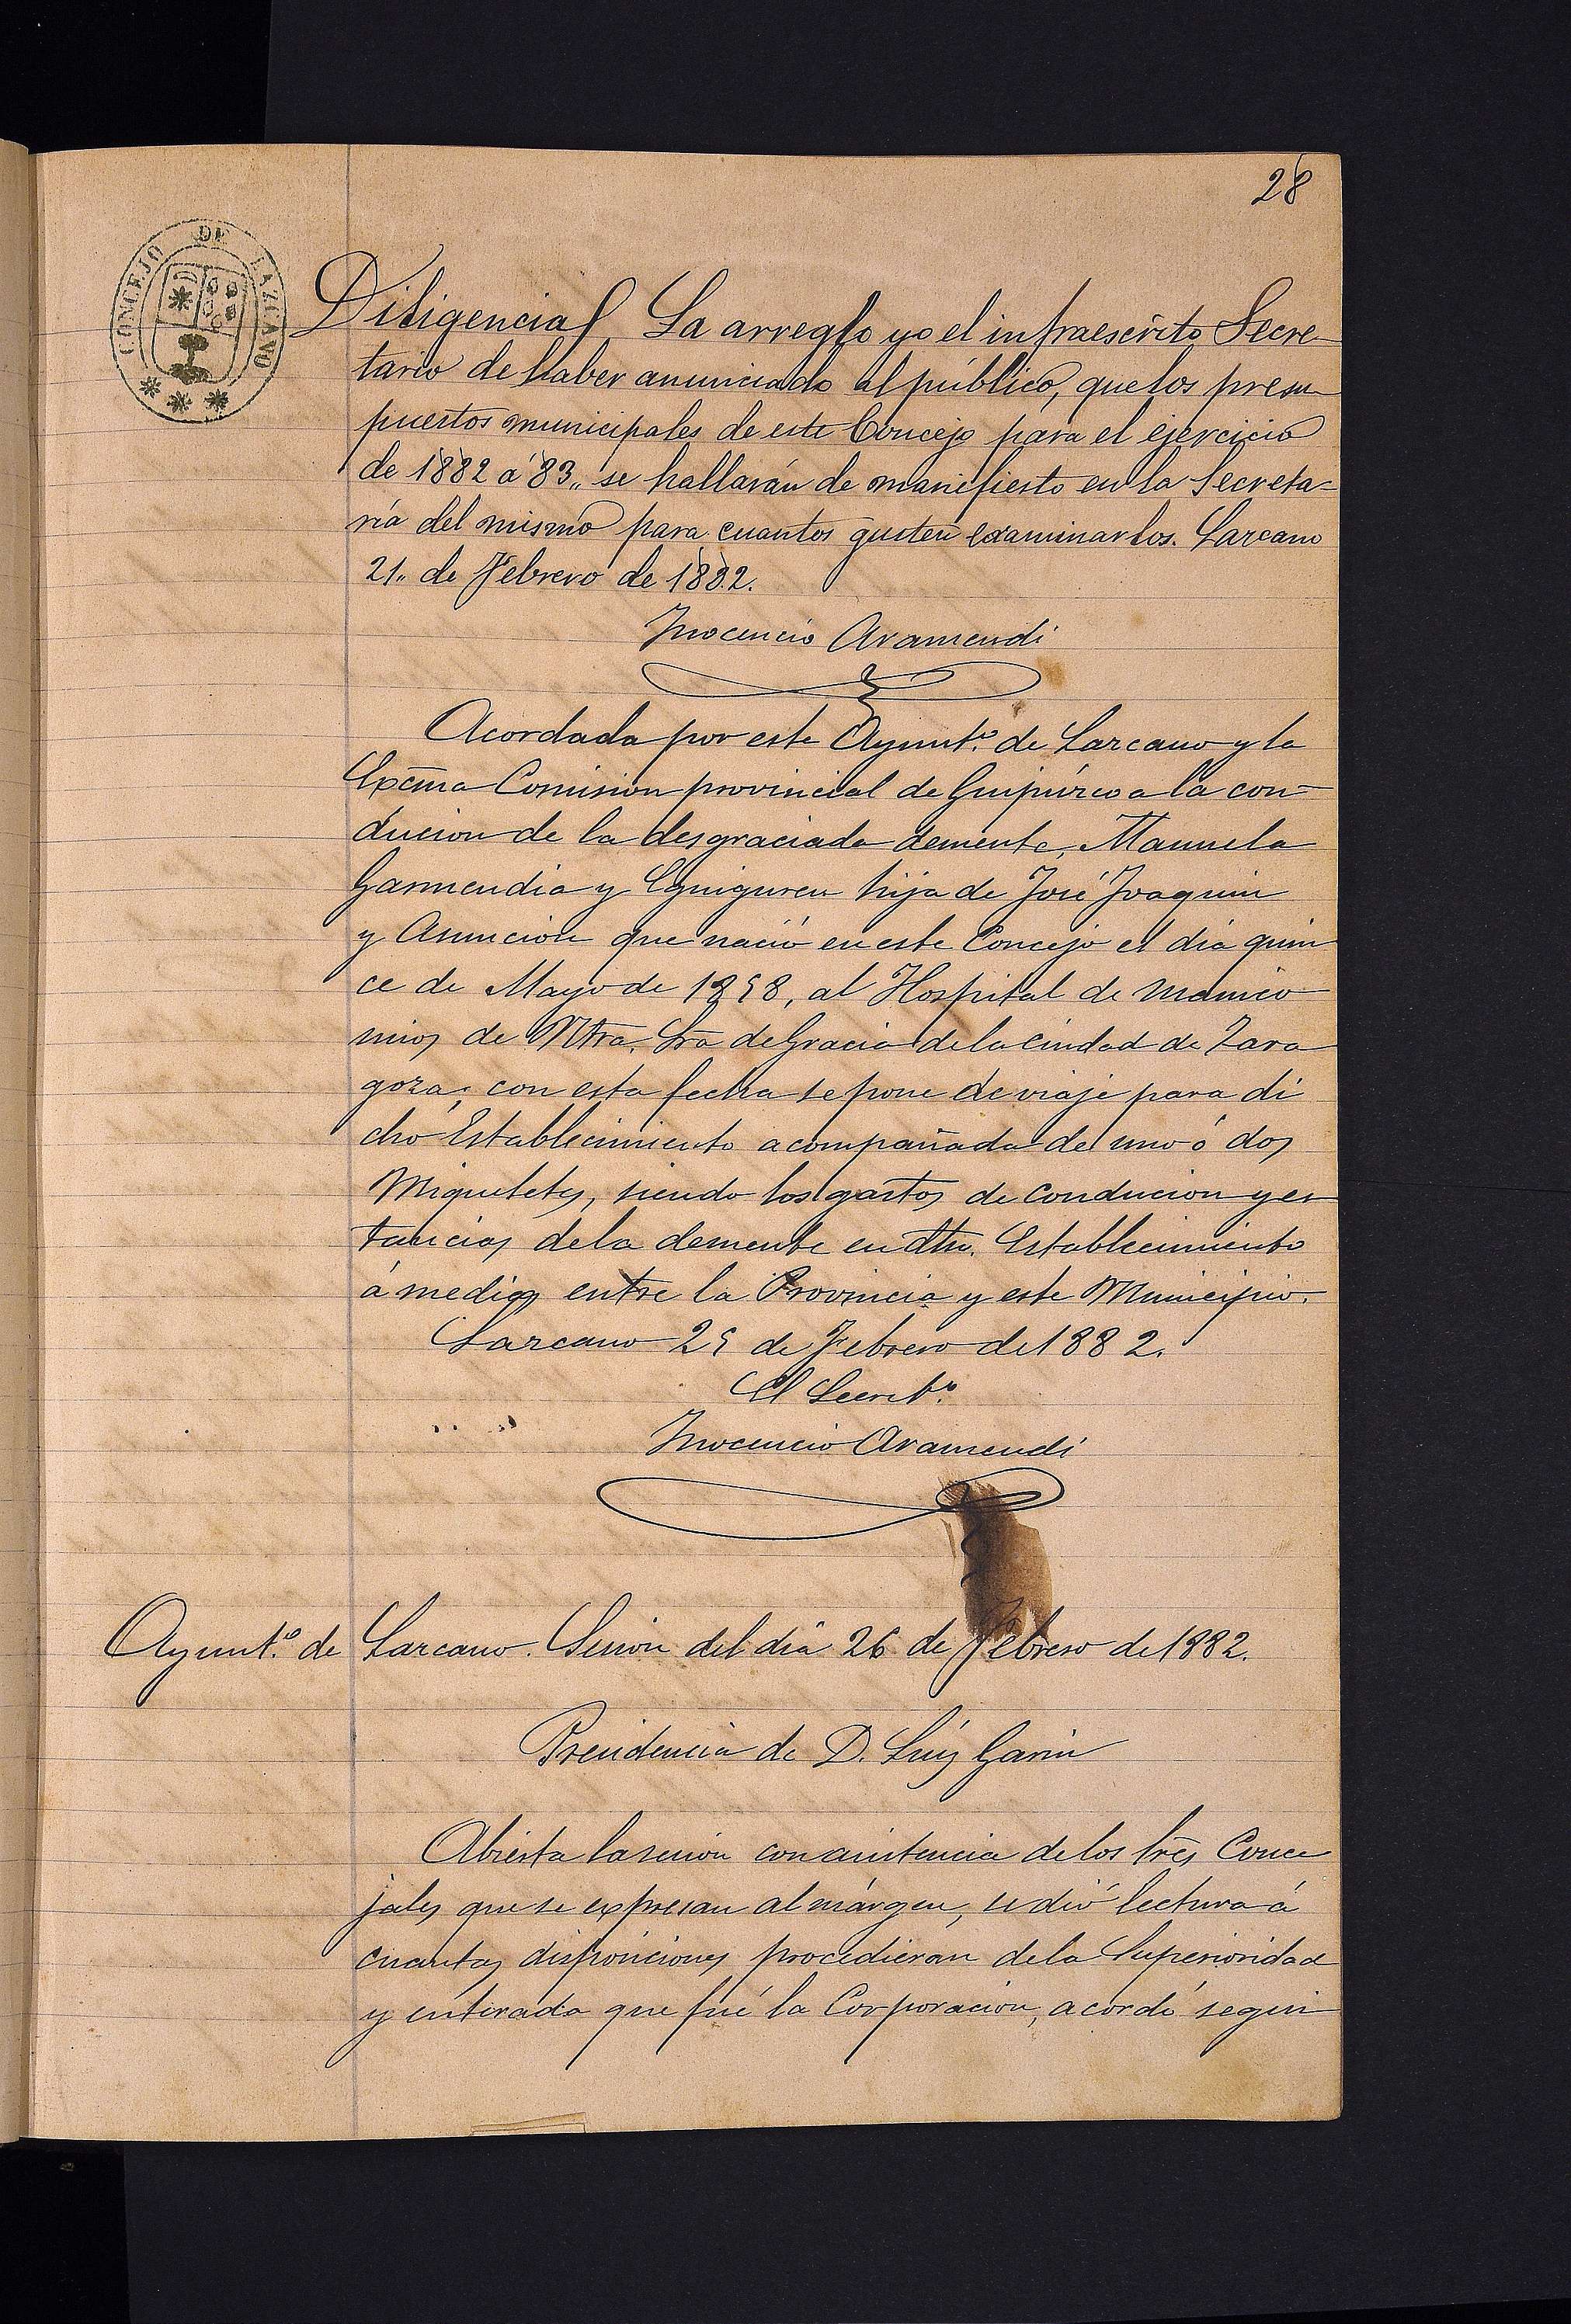 28
CONCEJO DE LAZCANO
Diligencia La arreglo yo el infraescrito Secre-
tario de haber anunciado al público, que los presu-
puestos municipales de este Concejo para el ejercicio
de 1882 a 83,, se hallarán de manifiesto en la Secreta=
ría del mismo para cuantos gusten examinarlos. Lazcano
21,, de Febrero de 1882.
Inocencio Aramendi
Acordada por este Ayunt.º de Lazcano y la
Excma Comision provincial de Guipúzcoa la con-
ducion de la desgraciada demente, Manuela
Garmendia y Eguiguren hija de José Joaquin
y Asuncion que nació en este Concejo el dia quin
ce de Mayo de 1858, al Hospital de manico
mios de Ntra. Sra de Gracia de la Ciudad de Zara
goza; con esta fecha se pone de viaje para di
cho Establecimiento acompañada de uno ó dos
Miqueletes, siendo los gastos de conducion y es
tancias de la demente en dho. Establecimiento
á medias entre la Provincia y este Municipio.
Lazcano 25 de Febrero de 1882.
El Secret.º
Inocencio Aramendi
Ayunt.º de Lazcano. Sesion del dia 26 de Febrero de 1882.
Presidencia de D. Luis Garin
Abierta la sesion con asistencia de los Srēs Conce
jales que se expresan al márgen, se dió lectura á
cuantas disposiciones procedieran de la Superioridad
y enterada que fué la Corporacion, acordó segun